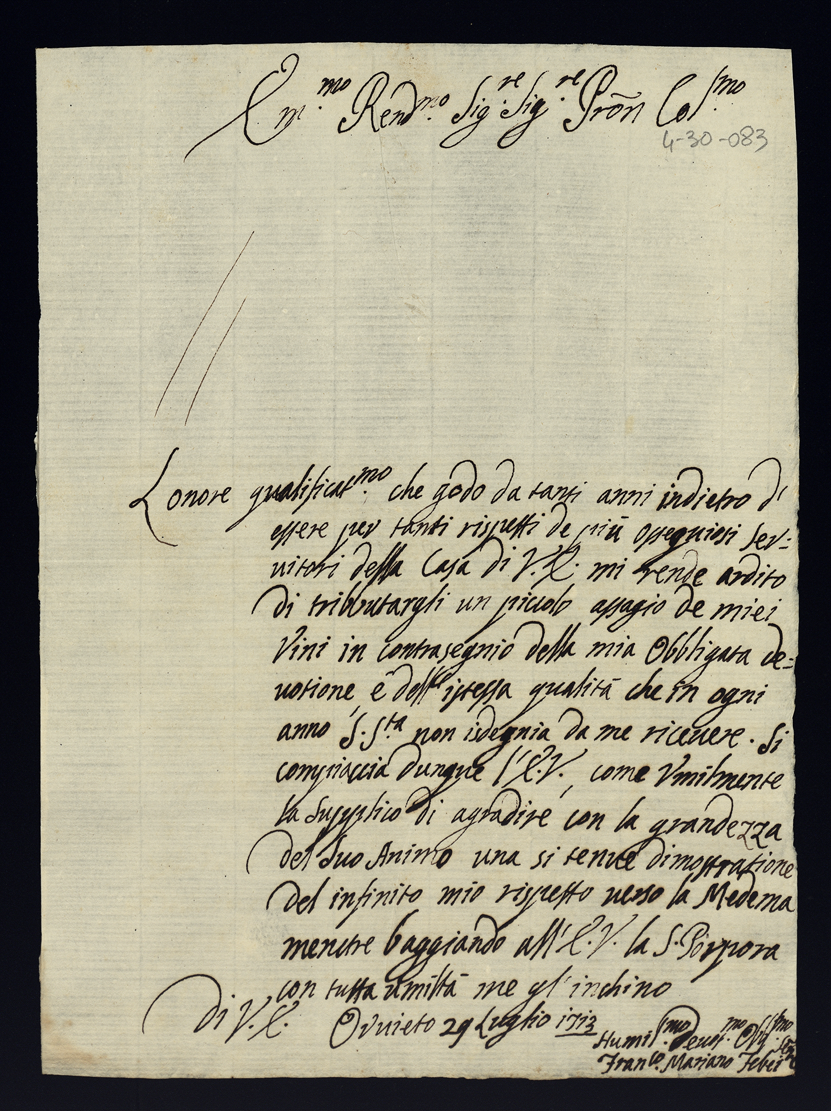 Em.mo Rend.mo Sig.re Sig.re Prõn Col.mo
4-30-083
Lonore qualificat.mo che godo da tanti anni indietro di
essere per tanti rispetti de più ossequiosi Ser-
uitori della Casa di V.E. mi rende ardito
di tribbutargli un piccolo assagio de miei
Vini in contrasegnio della mia Obbligata de=
uotione, è dell'istessa qualità che in ogni
anno S. S.ta non isdegnia da me riceuere. Si
compiaccia dunque l'E.V., come Vmilmente
la Supplico di agradire, con la grandezza
del Suo Animo una si tenue dimostratione
del infinito mio rispetto verso la Medema
mentre baggiando all'E.V. la S. Porpora
con tutta umiltà me gl'inchino
di V.E. Oruieto 29 Luglio 1713
Humil.mo Deuot.mo Obl.mo Ser.
Fran.co Mariano Febei